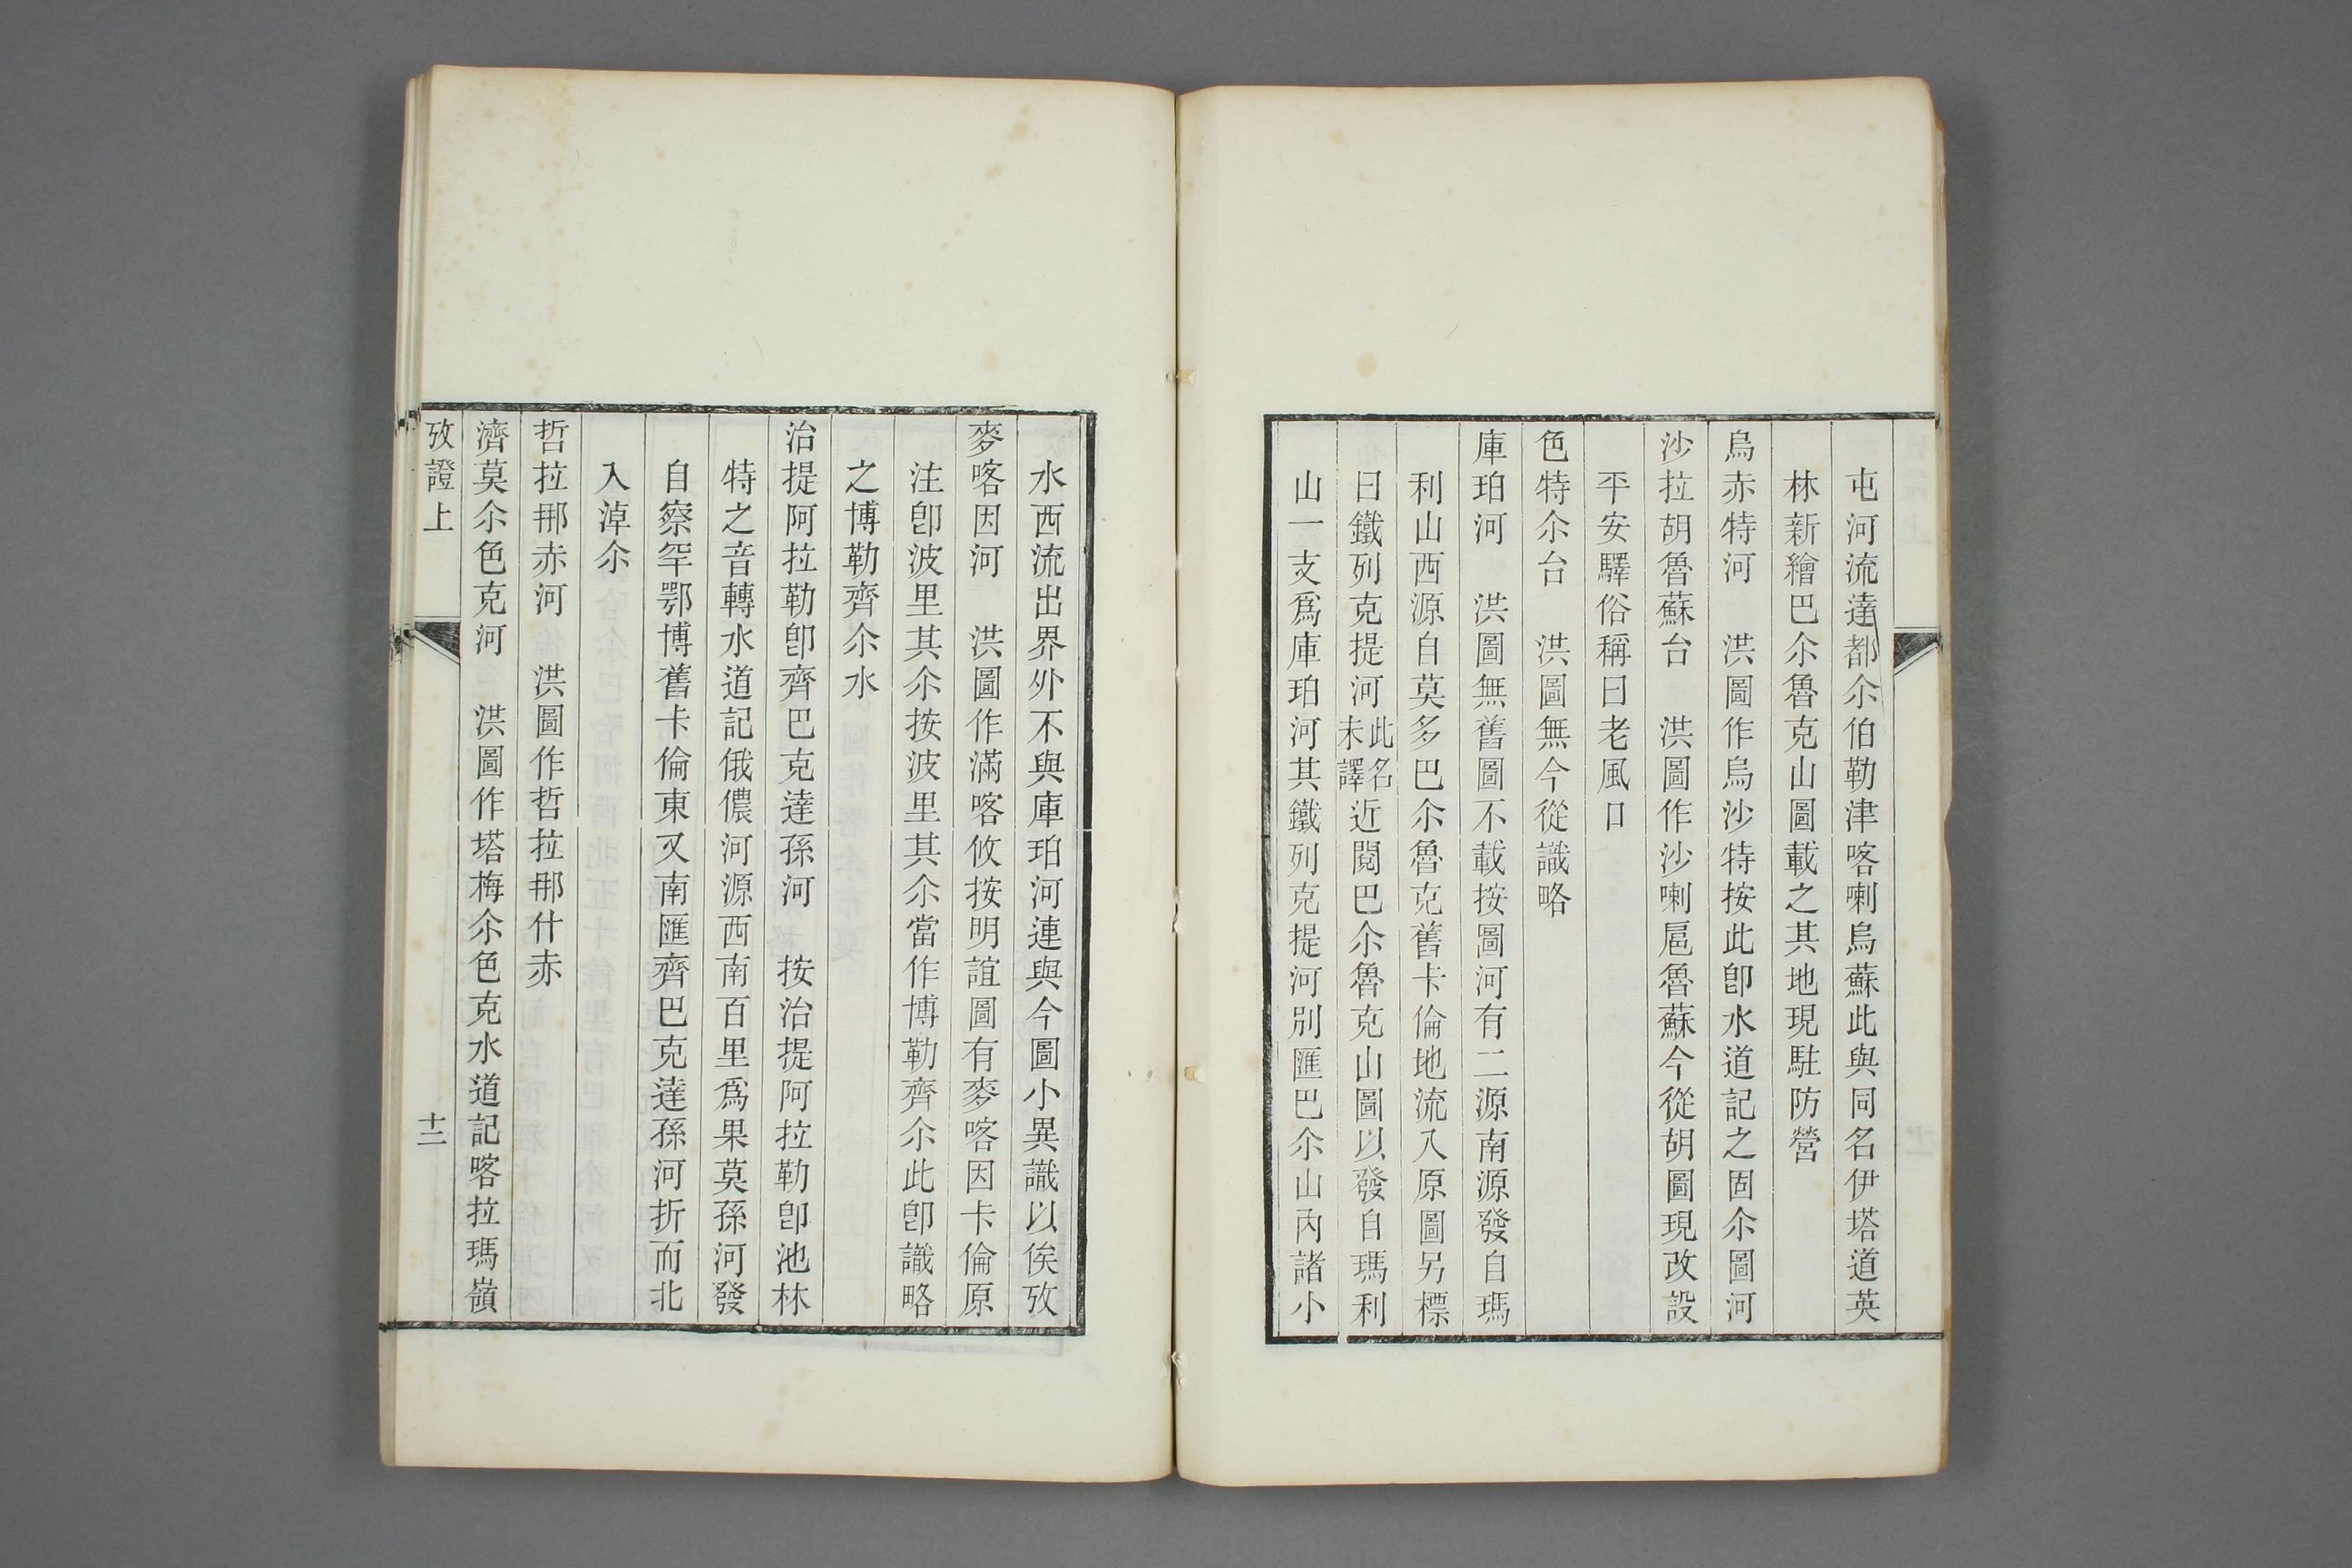 屯河流達都尒伯勒津喀喇烏蘇此與同名伊塔道英
林新繪巴尒魯克山圖載之其地現駐防營
烏赤特河　洪圖作烏沙特按此卽水道記之固尒圖河
沙拉胡魯蘇台　洪圖作沙喇扈魯蘇今從胡圖現改設
平安驛俗稱曰老風口
色特尒台　洪圖無今從識略
庫珀河　洪圖無舊圖不載按圖河有二源南源發自瑪
利山西源自莫多巴尒魯克舊卡倫地流入原圖另標
曰鐵列克提河此名未譯近閱巴尒魯克山圖以發自瑪利
山一支爲庫珀河其鐵列克提河別匯巴尒山內諸小
水西流出界外不與庫珀河連與今圖小異識以俟攷
麥喀因河　洪圖作滿喀攸按明誼圖有麥喀因卡倫原
注卽波里其尒按波里其尒當作博勒齊尒此卽識略
之博勒齊尒水
治提阿拉勒卽齊巴克達孫河　按治提阿拉勒卽池林
特之音轉水道記俄儂河源西南百里爲果莫孫河發
自察罕鄂博舊卡倫東又南匯齊巴克達孫河折而北
入淖尒
哲拉那赤河　洪圖作哲拉那什赤
濟莫尒色克河　洪圖作塔梅尒色克水道記喀拉瑪嶺
攷證上
十二